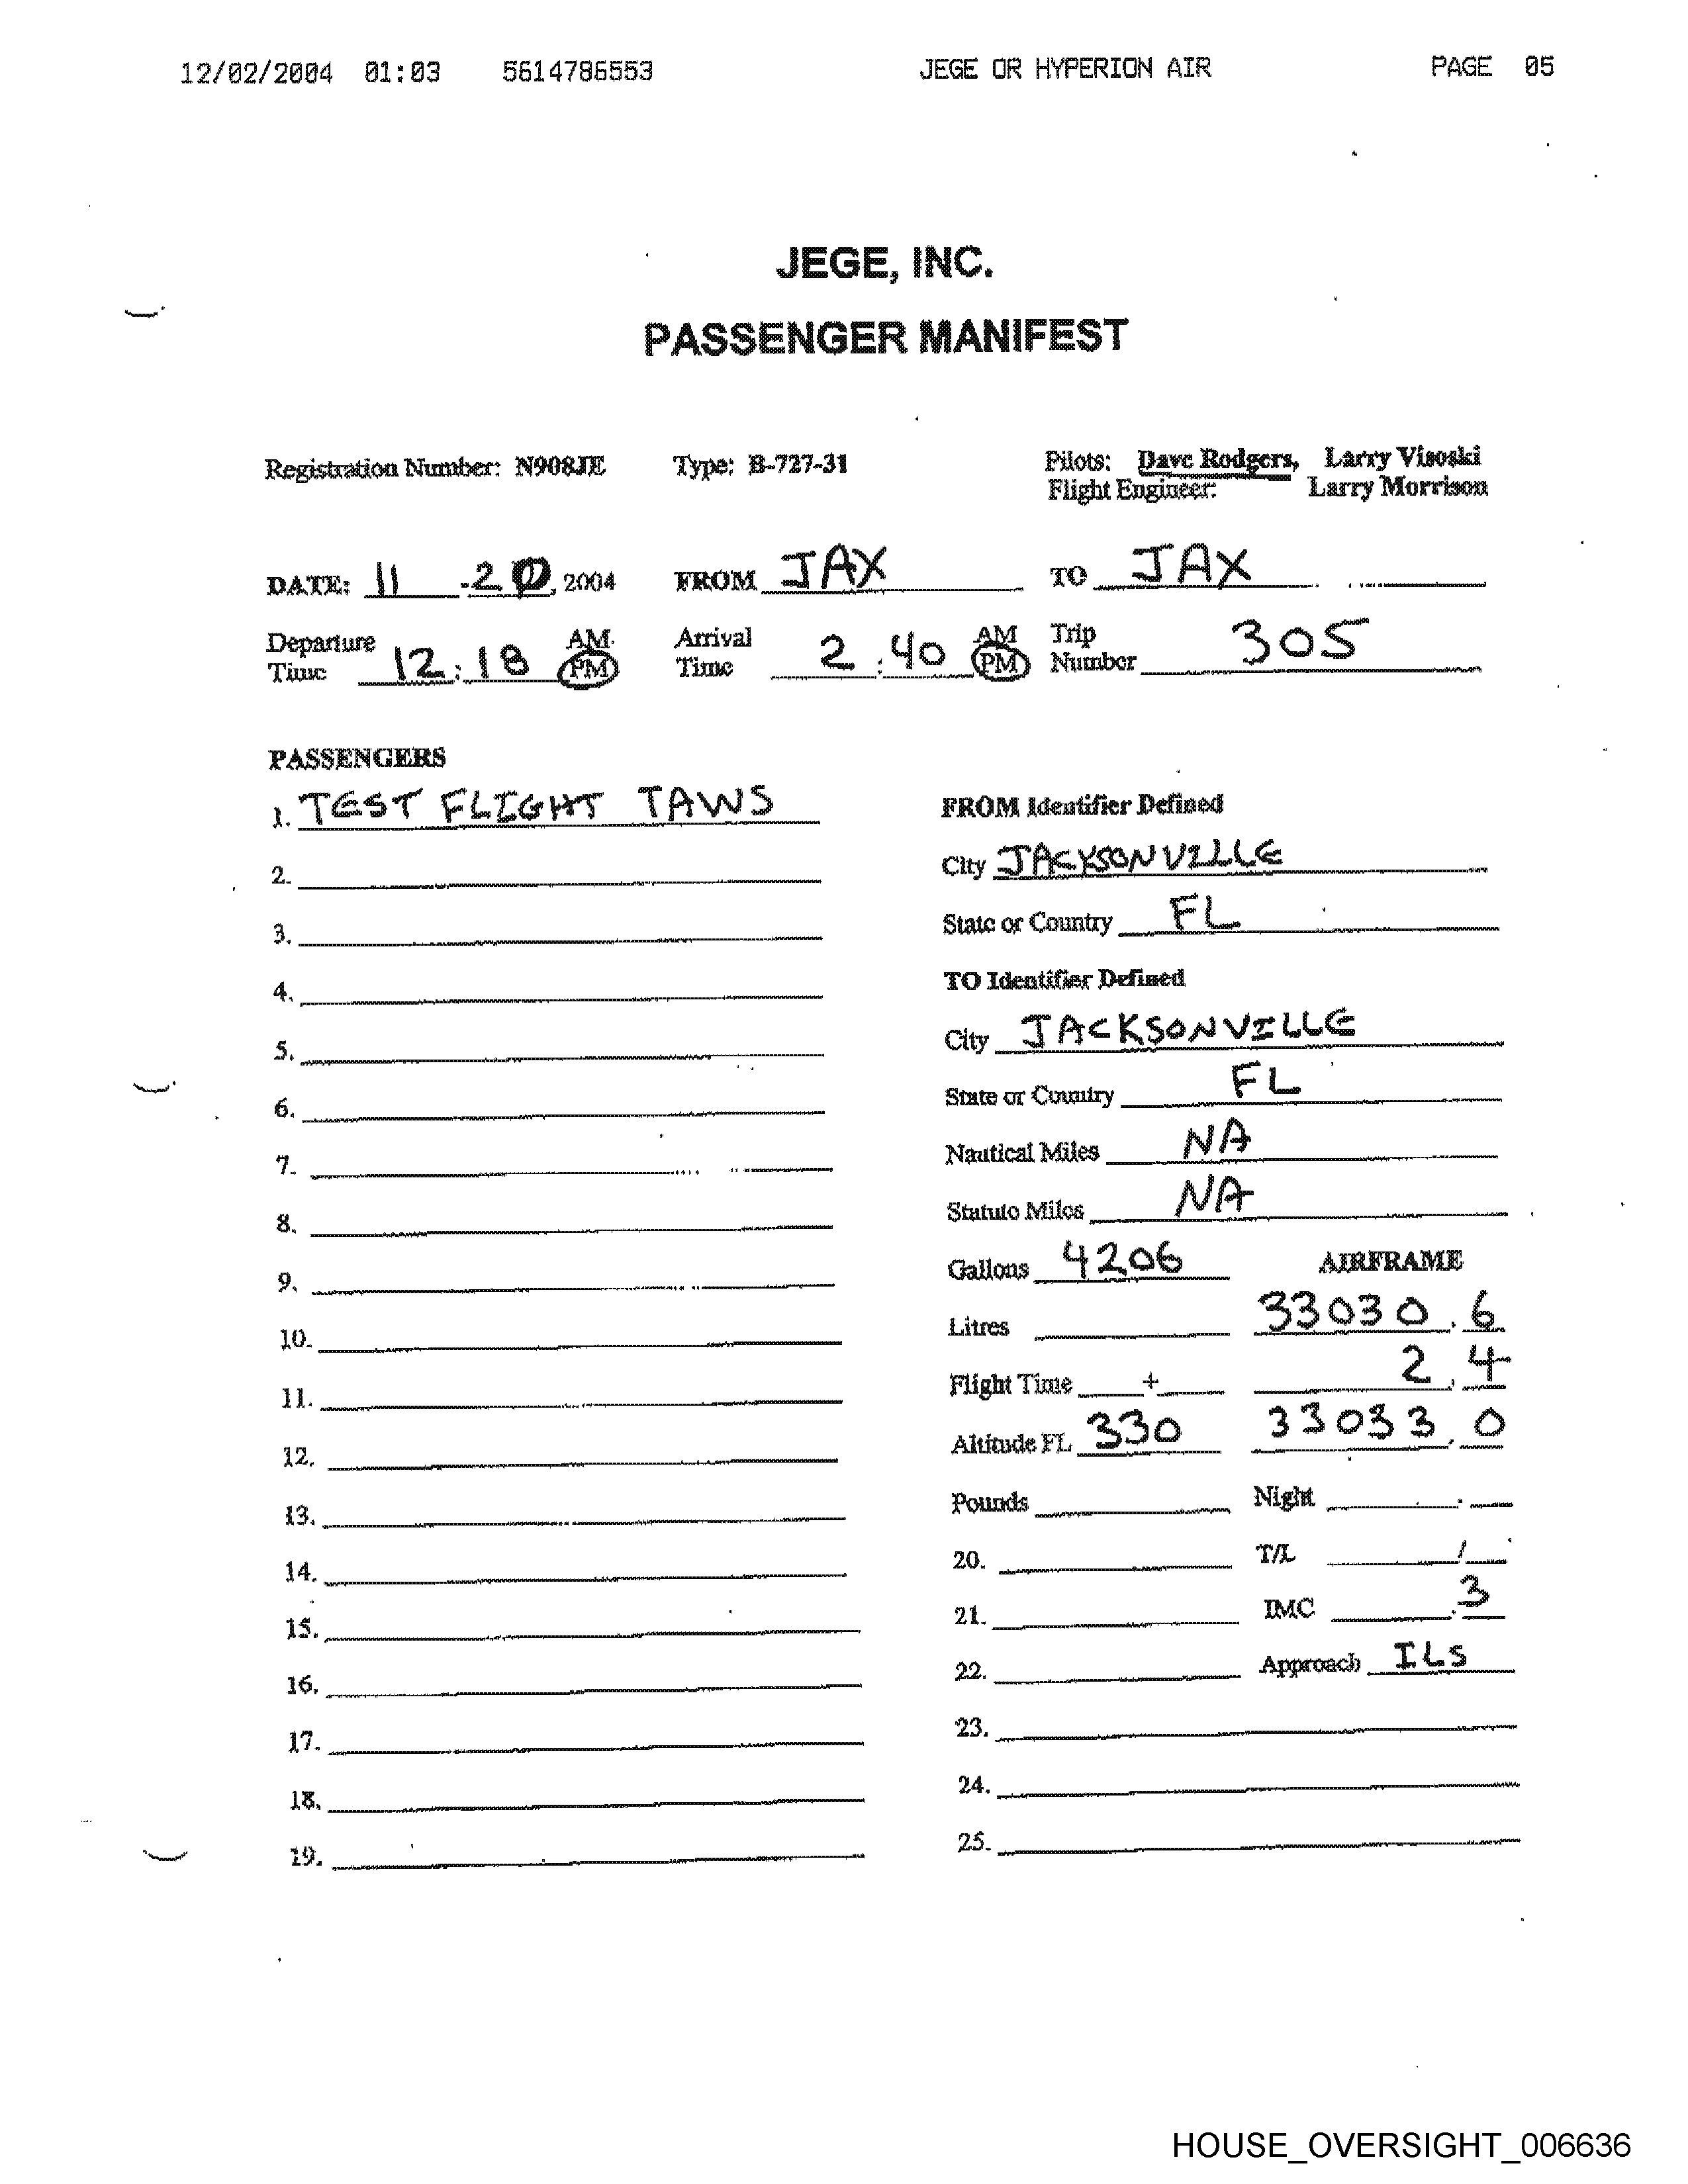 12/02/2004 01:03 5614786553 JEGE OR HYPERION AIR PAGE 05
JEGE, INC.
PASSENGER MANIFEST
Registration Number: N908JE Type: B-727-31 Pilots: Dave Rodgers, Larry Visoski
Flight Engineer: Larry Morrison
DATE: 11 -20, 2004 FROM JAX TO JAX
Departure Time 12:18 AM PM Arrival Time 2:40 AM PM Trip Number 305
PASSENGERS
1. TEST FLIGHT TAWS
2.
3.
4.
5.
6.
7.
8.
9.
10.
11.
12.
13.
14.
15.
16.
17.
18.
19.
FROM Identifier Defined
City JACKSONVILLE
State or Country FL
TO Identifier Defined
City JACKSONVILLE
State or Country FL
Nautical Miles NA
Statute Miles NA
Gallons 4206 AIRFRAME
Litres 33030.6
Flight Time + 2.4
Altitude FL 330 33033.0
Pounds Night .
20. T/L /
21. IMC .3
22. Approach ILS
23.
24.
25.
HOUSE_OVERSIGHT_006636